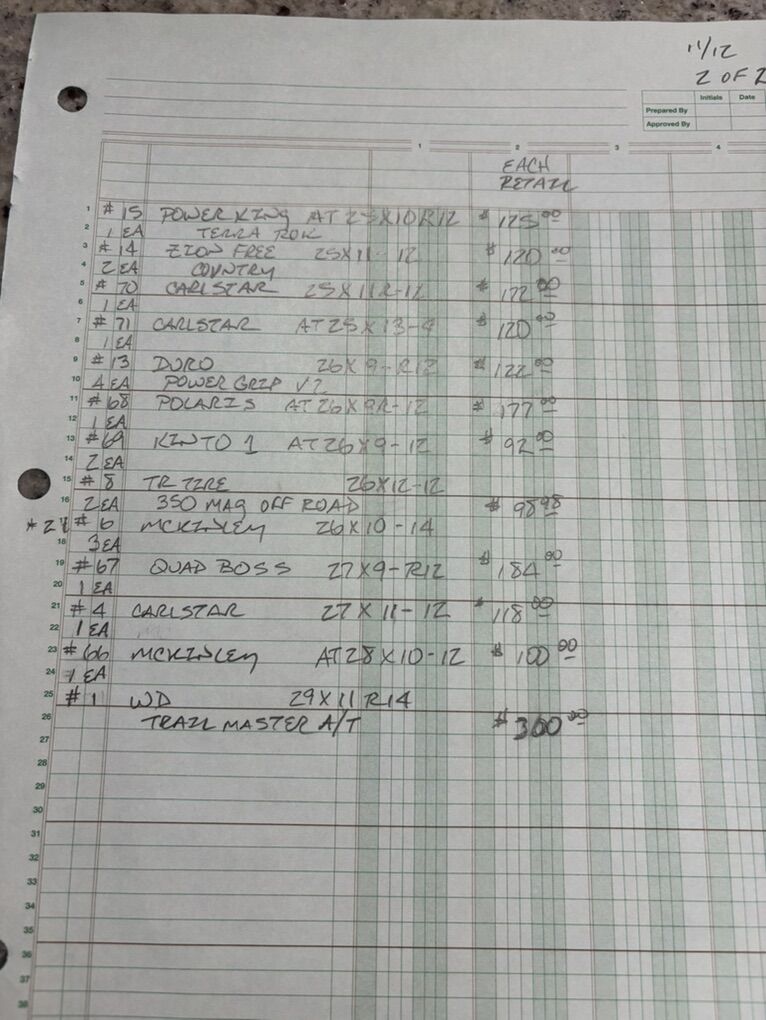 11/12
2 OF 2
Initials Date
Prepared By
Approved By
1 2 3 4
EACH
RETAIL
1 #15 POWER KING AT 25X10R12 $125.00
2 1 EA TERRA ROK
3 #14 ZION FREE 25X11-12 $120.00
4 2 EA COUNTRY
5 #70 CARLSTAR 25X11R-12 $172.00
6 1 EA
7 #71 CARLSTAR AT25X13-9 $120.00
8 1 EA
9 #13 DURO 26X9-R12 $122.00
10 4 EA POWER GRIP V2
11 #68 POLARIS AT26X9R-12 $177.00
12 1 EA
13 #69 KINTO 1 AT26X9-12 $92.00
14 2 EA
15 #8 TR TIRE 26X12-12
16 2 EA 350 MAG OFF ROAD $98.98
#6 MCKINLEY 26X10-14
18 3 EA
19 #67 QUAD BOSS 27X9-R12 $184.00
20 1 EA
21 #4 CARLSTAR 27X11-12 $118.00
22 1 EA
23 #66 MCKINLEY AT28X10-12 $100.00
24 1 EA
25 #1 WD 29X11R14
26 TRAIL MASTER A/T $300.00
27
28
29
30
31
32
33
34
35
36
37
38